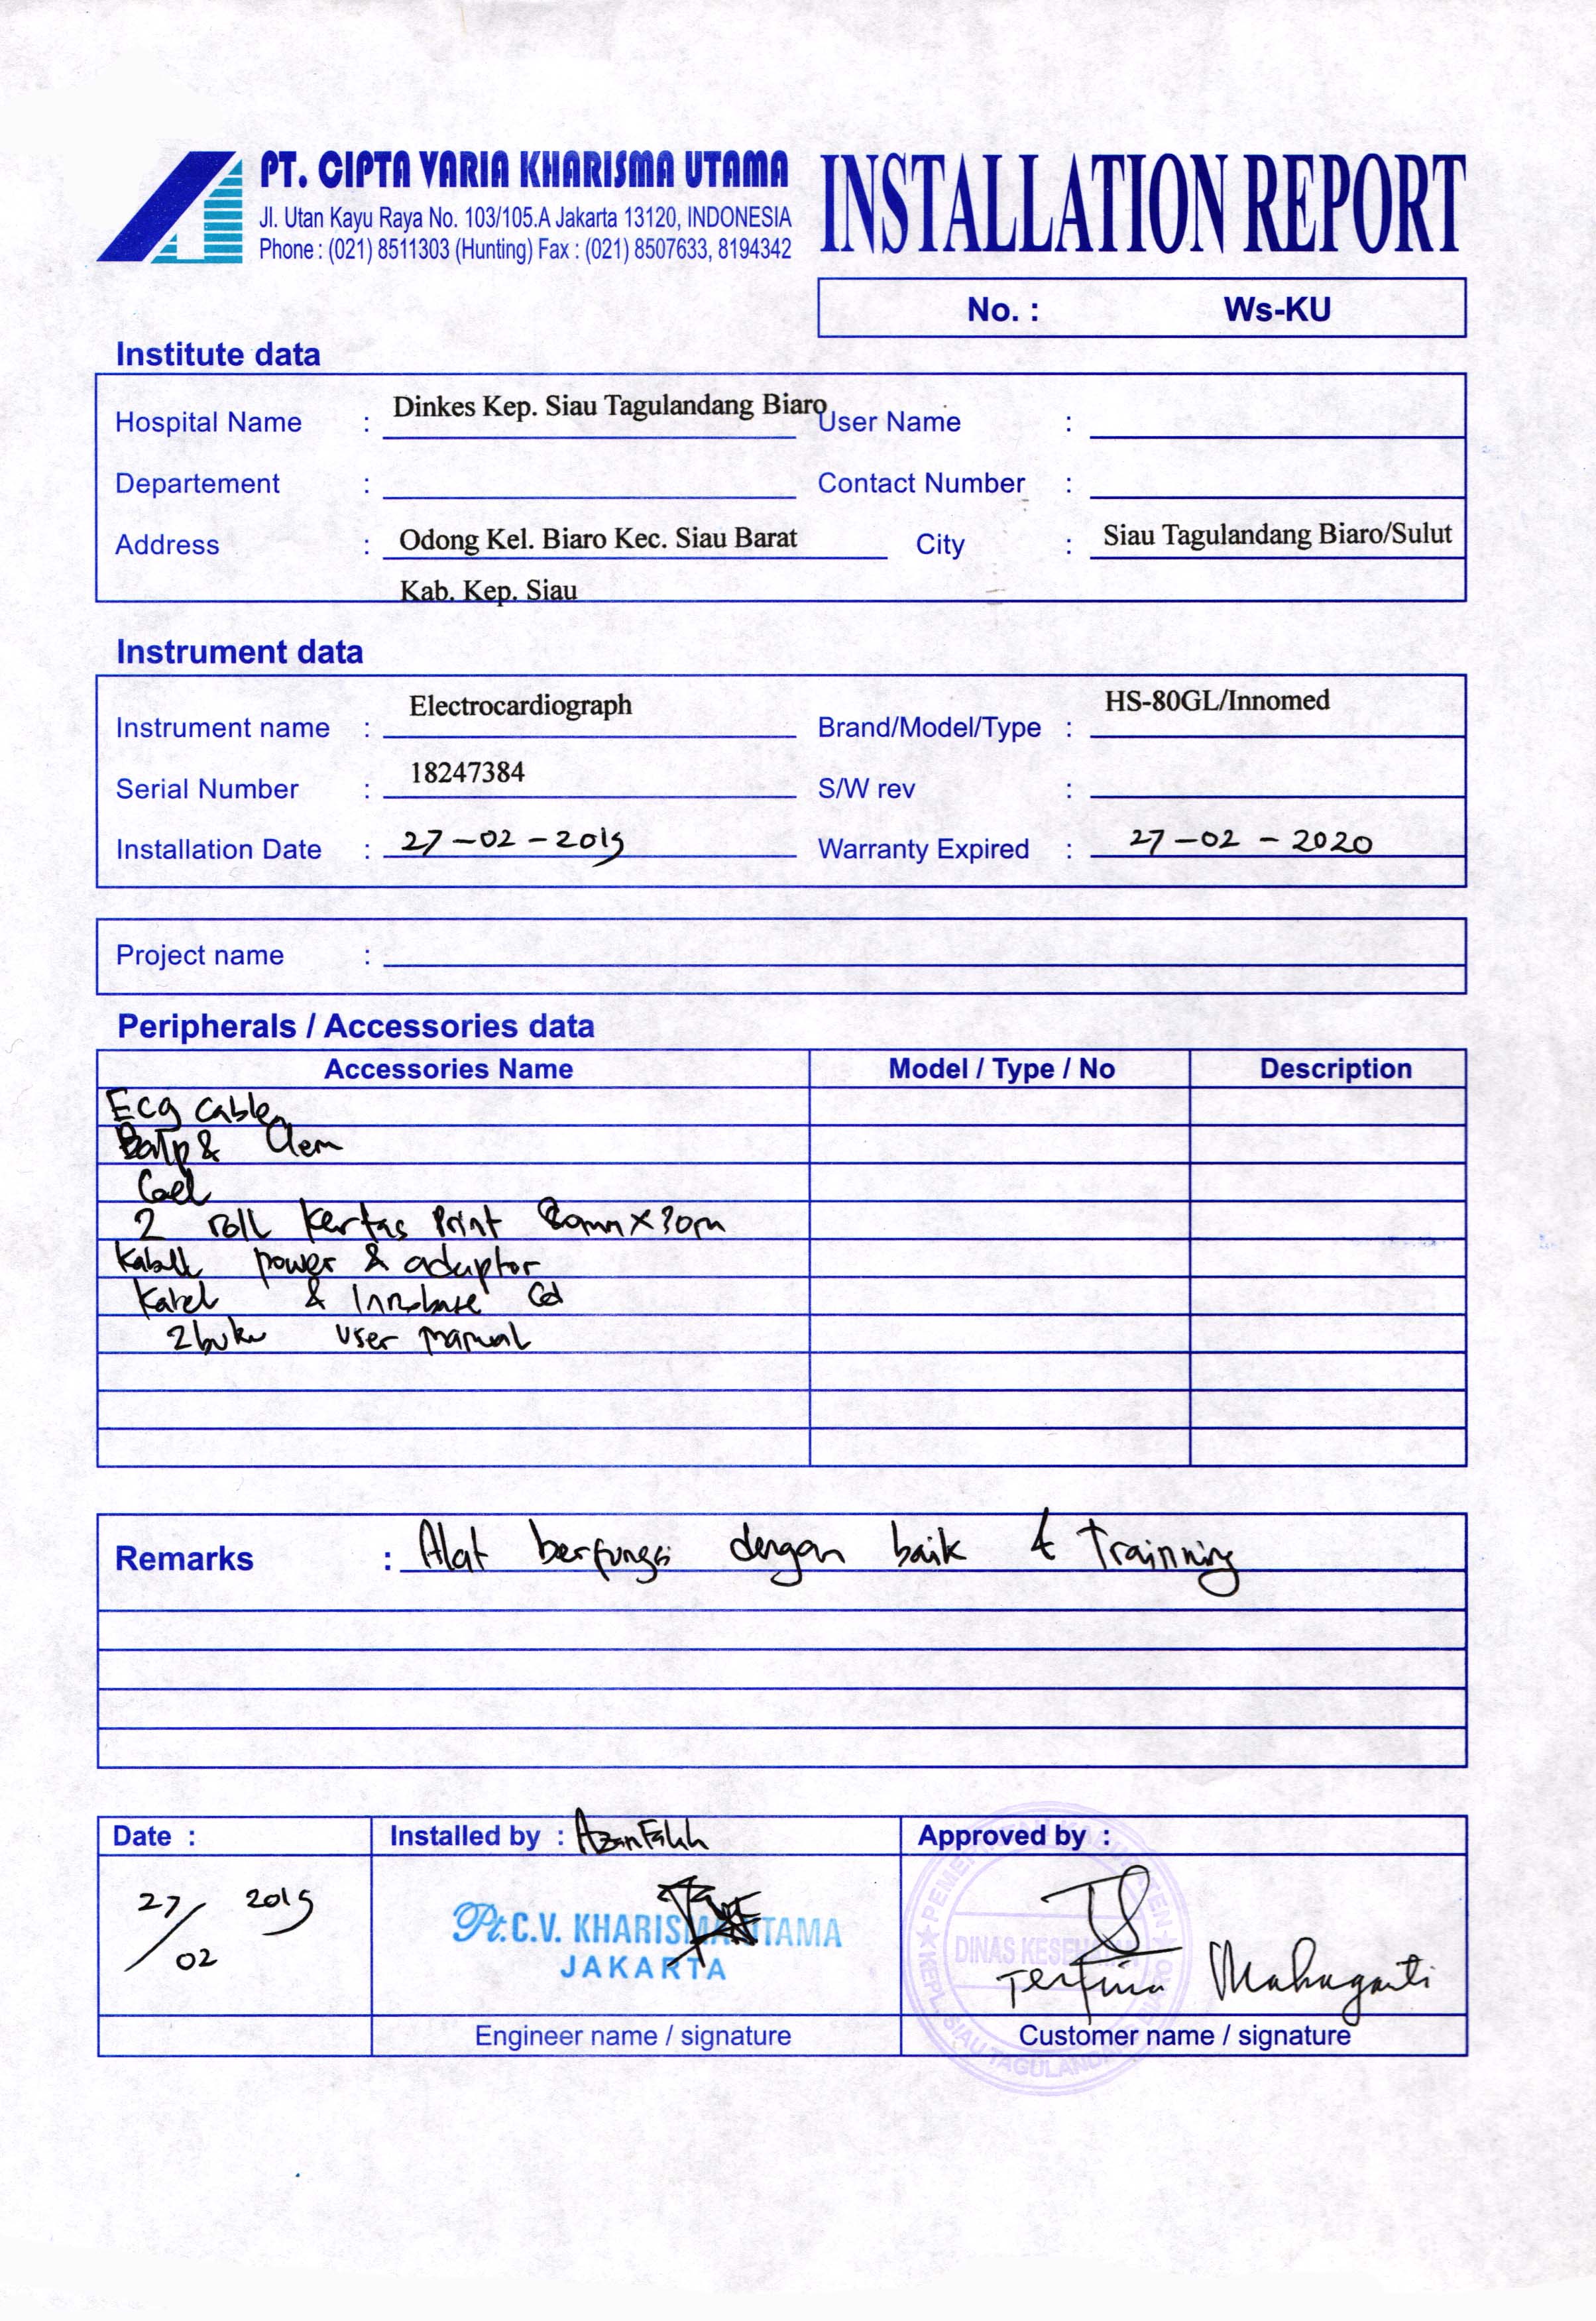 PT. CIPTA VARIA KHARISMA UTAMA
Jl. Utan Kayu Raya No. 103/105.A Jakarta 13120, INDONESIA
Phone : (021) 8511303 (Hunting) Fax : (021) 8507633, 8194342
INSTALLATION REPORT
No. : Ws-KU
Institute data
Hospital Name : Dinkes Kep. Siau Tagulandang Biaro User Name :
Departement : Contact Number :
Address : Odong Kel. Biaro Kec. Siau Barat City : Siau Tagulandang Biaro/Sulut
Kab. Kep. Siau
Instrument data
Instrument name : Electrocardiograph Brand/Model/Type : HS-80GL/Innomed
Serial Number : 18247384 S/W rev :
Installation Date : 27-02-2019 Warranty Expired : 27-02-2020
Project name :
Peripherals / Accessories data
Accessories Name Model / Type / No Description
Ecg cable
&
2 roll kertas Print
power & adaptor
&
2 buku user manual
Remarks : Alat berfungsi dengan baik & Trainning
Date : Installed by : Approved by :
27/02 2019
Pt. C.V. KHARISMA UTAMA
JAKARTA
PEMERINTAH KABUPATEN
DINAS KESEHATAN
KEPL. SIAU TAGULANDANG BIARO
Engineer name / signature Customer name / signature